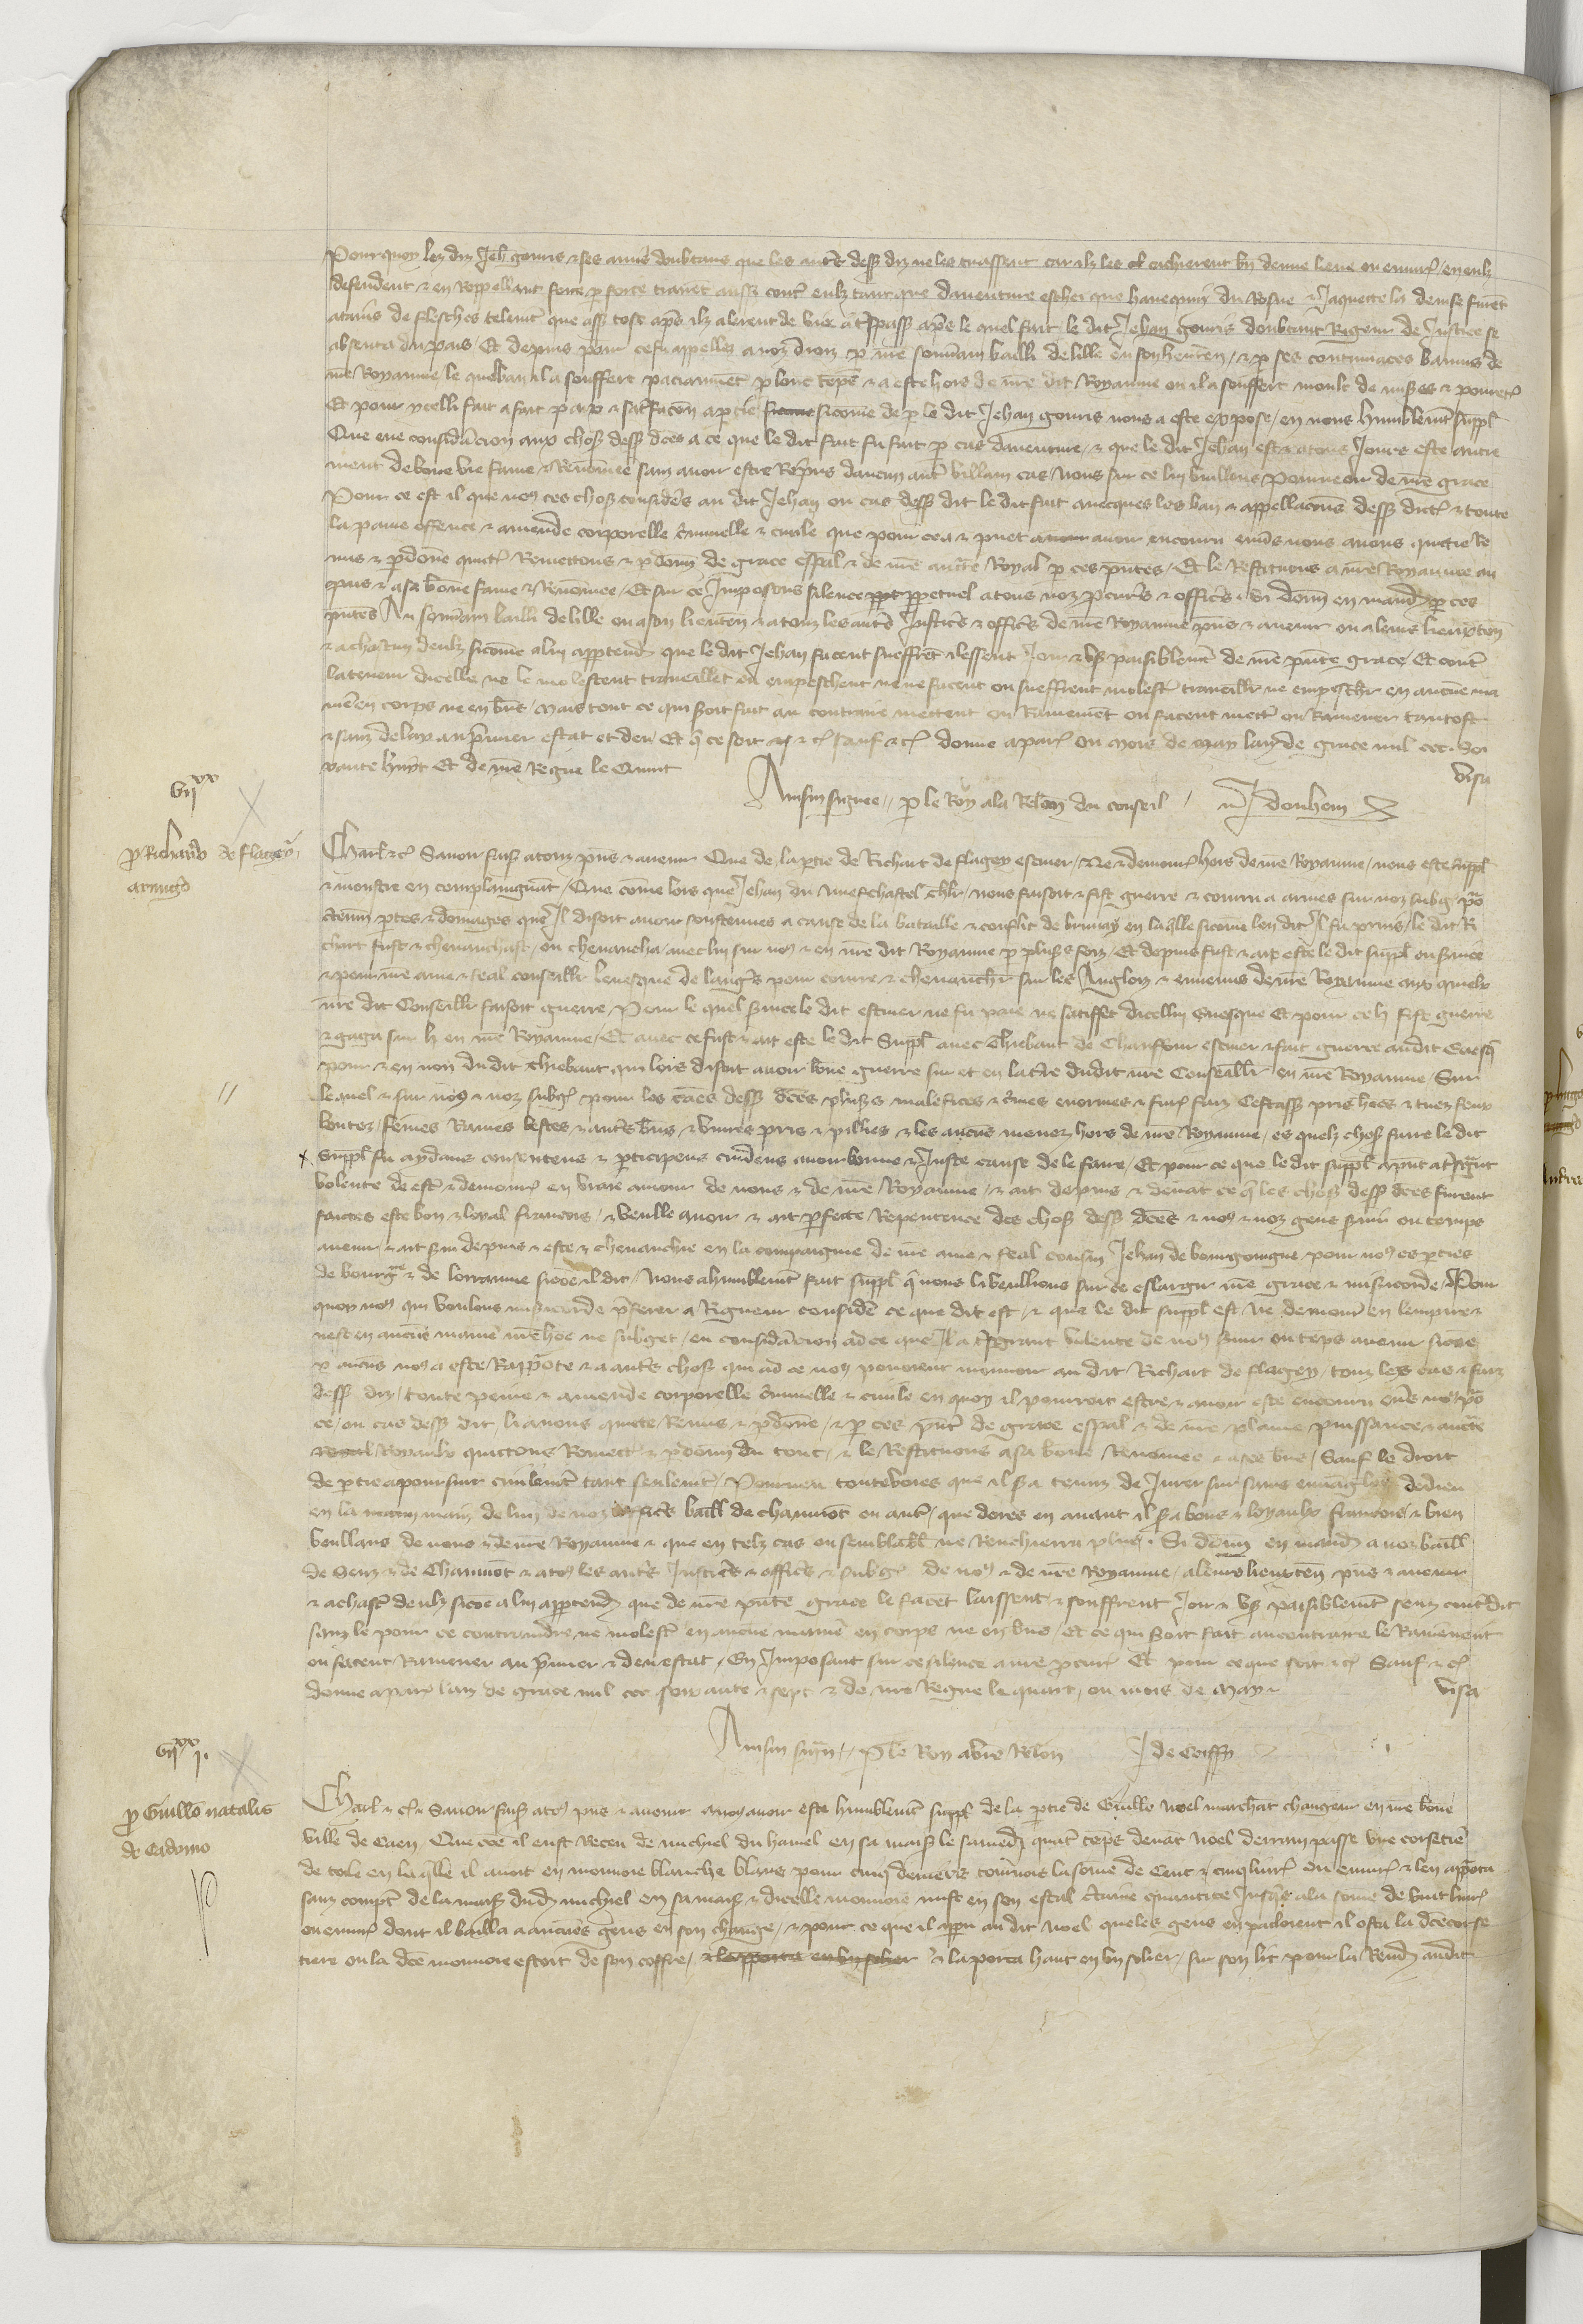 Pour quoy lez diz Jeh gomis & ses amis doubtans que les autres dess diz ne les tuassent car ilz les cachierent bn demie lieue ou enuir / en eulz
defendent & en Reppellant force p force trairet aussi contr eulz tant que dauenture eschei que hanequin du Rosne & Jaquette la deuise furet
atains de flesches telemt que ass tost aps ilz alerent de vie a tspass aps le quel fait le dit Jehan gomis doubtant Rigeur de Justice se
absenta du pais / Et depuis pour ce fu appellez a noz droiz p nre souuain bailli de lille ou son lieuten / & p ses contumaces bannis de
nre Royaume le quel ban il a souffert paciaument p lonc teps & a este hors de nre dit Royaume ou il a souffert moult de mises & pouretes
Et pour ycelli fait a fait paix & satisfacon a ptie sicome de p le dit Jehan gomis nous a este expose / en nous humblemt suppl
Que eue consideracion aux choses dess dces a ce que le dit fait fu fait p cas dauenture / & que le dit Jehan est & a touz Jours este autre
ment de bone vie fame & Renommee sanz auoir este Repris daucun autre villain cas / Nous sur ce lui vuillons Pourueoir de nre grace
Pour ce est il que nous ces choses considees au dit Jehan ou cas dess dit le dit fait auecques les ban & appellacions dess dictz & toute
la paine offence & amende corporelle criminelle & ciuile que pour ce a & puet auoir encouru enuers nous auons quictie Re
mis & pdonne quictons Remettons & pdonnons de grace espal & de nre auctorite Royal p ces pntes / Et le Restituons a nre Royaume au
pais & a sa bonne fame & Renommee / Et sur ce Imposons silence ppetuel a touz noz pcurs & officiers. Si donnons en mandement p ces
pntes Au souuain bailli de lille ou a son lieuten & a touz les autres Justiciers & officiers de nre Royaume pns & auenir ou a leurs lieuxten
& a chascun deulz sicome a lui apptendra que le dit Jehan facent sueffret & lessent Joir & user paisiblemt de nre pnte grace / Et contre
la teneur dicelle ne le molestent trauaillet ou empeschent ne ne facent ou sueffrent molester trauaillier ne empeschier en aucune ma
niere en corps ne en biens / Mais tout ce qui seroit fait au contraire mettent ou Ramenet ou facent mettre ou Ramener tantost
& sanz delay au premier estat et deu / Et que ce soit & c Sauf & c donne a Paris ou mois de May lan de grace mil ccc. soi
xante huyt Et de nre Regne le Quint
visa
Ainsin signee // p le Roy a la Relon du conseil / N. J. Douhem
vii xx
p Richardo de flagey
armigo
Charl &c Sauoir fais a touz pns & auenir Que de la ptie de Richart de flagey escuier / Ne & demourant hors de nre Royaume / nous este suppl
& monstre en complaingnant / Que come lors que Jehan du nuefchastel chlr / nous faisoit & fist guerre & couru a armes sur noz subgez pour
certaines ptes & domages que Il disoit auoir soustenues a cause de la bataille & conflit de brinay en la quelle sicome len dit Il fu pris / le dit Ri
chart fust & cheuauchast / ou cheuaucha / auec lui sur nous & en nre dit Royaume p pluss foiz / Et depuis fust & ait este le dit suppl ou seruice
& pour nre ame & feal conseillr leuesque de langres pour courre & cheuauchier sur les Anglois & ennemis de nre Royaume aux quelx
nre dit Conseillr faisoit guerre Pour le quel seruice le dit escuier ne fu paie ne satiffet dicellui Euesque Et pour ce li fist guerre
& gaga sur li en nre Royaume / Et auec ce fust & ait este le dit Suppl auec Thiebaut de Chauffour escuier & fait guerre audit Euesque
pour & en non du dit Thiebaut qui lors disoit auoir bone guerre sur et en la tre dudit nre Conseillr en nre Royaume / Sur
le quel & sur nous & noz subgez pour les causes dess dces pluss malefices & crimes enormes & furent faiz Cestass pris homes & tuez feux
boutez / femes Raines bestes & autres biens & viures pris & pilliez & les aucuns menez hors de nre Royaume / es quelz choses faire le dit
suppl fu aydans consentens & pticipens cuidens auoir bonne & Juste cause de le faire / Et pour ce que le dit suppl a & aut a tsgrant
volente de estre & demourer en vraie amour de nous & de nre Royaume / & ait depuis & deuant ce que les choses dess dces furent
faictes este bon & loyal francois / & veulle auoir & ait pfecte Repentence des choses dess dces & nous & noz gens seruir ou temps
auenir / & ait serui depuis & este & cheuauchie en la compaignie de nre ame & feal cousin Jehan de bourgoingne pour nous es pties
de bourgne & de lorraine sicoe il dit / Nous a humblemt fait suppl que nous li veullions sur ce eslargir nre grace & misicorde / Pour
quoy nous qui voulons misicorde preferer a Rigueur considere ce que dit est / & que le dit suppl est ne & demourant en lempire &
nest en aucune maniere nre home ne subget / en consideracion ad ce que Il a tsgrant volente de nous seruir ou teps auenir sicoe
p aucuns nous a este Rapporte & a autres choses qui ad ce nous pouoient mouuoir au dit Richart de flagey / touz les cas & faiz
dess diz / toute peine & amende corporelle criminelle & ciuile en quoy il pourroit estre & auoir este encouru enuers nous pour
ce / ou cas dess dit / li auons quicte Remis & pdonne / & p ces pntes de grace espal & de nre plaine puissance & auctorite
Royaulx quictons Remectons & pdonnons du tout / & le Restituons a sa bone Renomee & a ses biens / Sauf le droit
de ptie a poursuir ciuilemt tant seulemt / Pourueu touteuoies que il sera tenuz de Jurer sur sains euuangiles de dieu
en la main de lun de noz bailliz de chaumont ou autre / que dores en auant il sera bons & loyaulx francois / & bien
veullans de nous & de nre Royaume & que en telz cas ou semblabl ne Rencherra plus. Si donnons en mandement a noz baill
de Senz & de Chaumot & a tous les autres Justiciers & officiers & subgez de nous & de nre Royaume / a leurs lieuxten pns & auenir
& a chascun deulz sicoe a lui apptendra que de nre pnte grace le facet laissent & souffrent Joir & user paisiblemt senz contredit
sanz le pour ce contraindre ne molester en aucune maniere en corps ne en biens / Et ce qui seroit fait au contraire le Ramenent
ou facent Ramener au premier & deu estat / En Imposant sur ce silence a nre pcureur Et pour ce que soit & c Sauf & c
donne a Paris lan de grace mil ccc soixante & sept & de nre Regne le quart, ou mois de May.
visa
Ainsin signee // P le Roy a vre Relon J de Coiffy
vii xx j.
p Guillo natalis
de Cadomo
Charl & c Sauoir fais a tous pns & auenir a nous auoir este humblemt suppl de la ptie de Guille Noel marchat changeur en nre bone
ville de Caen Que coe il eust Receu de michiel du hamel en sa maison le samedi quatre teps deuat Noel derrain passe vne corsetiere
de toile en la quelle il auoit en monnoie blanche blans pour cinq deniers tournois la some de Cent & cinq liures ou enuiron & len apporta
sanz compter de la maison dudit michiel en sa maison & dicelle monnoie mist en son estal certaine quantite Jusques a la some de vint liures
ou enuiron dont il bailla a aucunes gens en son change / & pour ce que il apparu au dit Noel queles gens en parloient il osta la dce corse
tiere ou la dce monnoie estoit de son coffre / & la porta haut en vn solier / sur son lit pour la Rendre audit